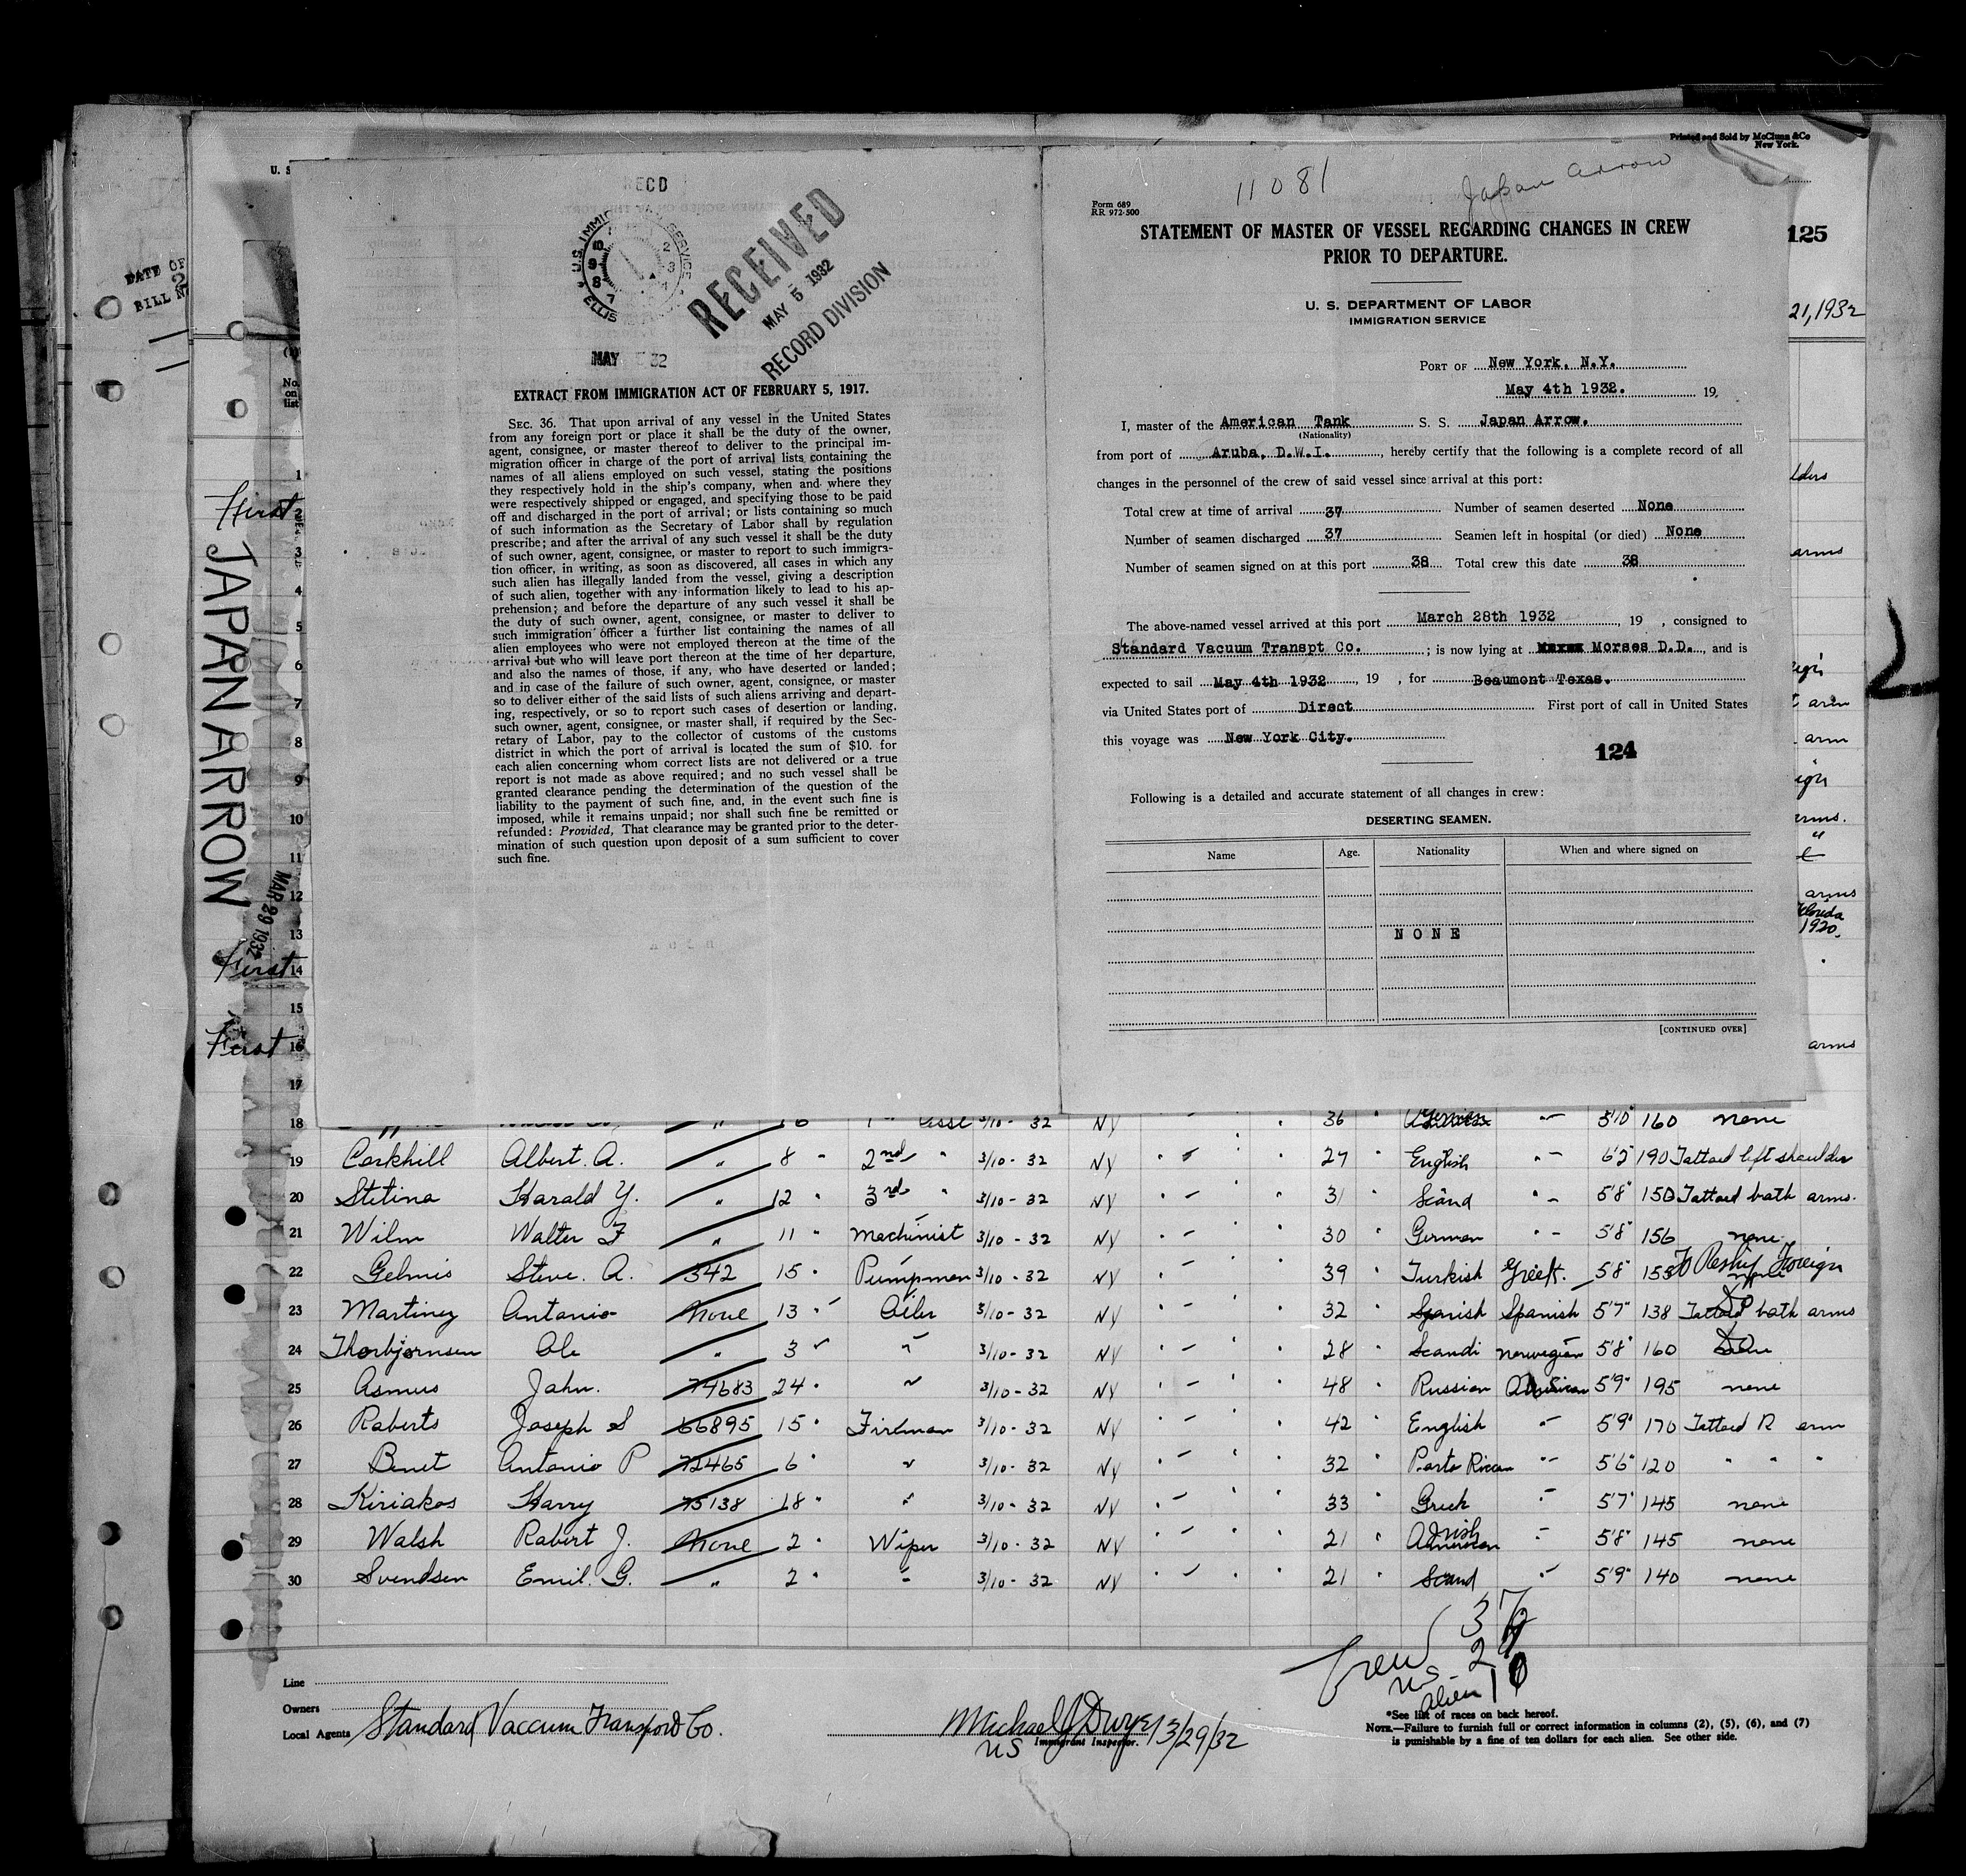 Printed and Sold by McClunn &Co
New York.
U. S
DATE OF
BILL N
125
21, 1932
No.
on
list
First
JAPAN ARROW
MAR 29 1932
First
First
RECD
U.S. IMMIG SERVICE
ELLIS
MAY 32
RECEIVED
MAY 5 1932
RECORD DIVISION
EXTRACT FROM IMMIGRATION ACT OF FEBRUARY 5, 1917.
SEC. 36. That upon arrival of any vessel in the United States
from any foreign port or place it shall be the duty of the owner,
agent, consignee, or master thereof to deliver to the principal im-
migration officer in charge of the port of arrival lists containing the
names of all aliens employed on such vessel, stating the positions
they respectively hold in the ship's company, when and where they
were respectively shipped or engaged, and specifying those to be paid
off and discharged in the port of arrival; or lists containing so much
of such information as the Secretary of Labor shall by regulation
prescribe; and after the arrival of any such vessel it shall be the duty
of such owner, agent, consignee, or master to report to such immigra-
tion officer, in writing, as soon as discovered, all cases in which any
such alien has illegally landed from the vessel, giving a description
of such alien, together with any information likely to lead to his ap-
prehension; and before the departure of any such vessel it shall be
the duty of such owner, agent, consignee, or master to deliver to
such immigration officer a further list containing the names of all
alien employees who were not employed thereon at the time of the
arrival but who will leave port thereon at the time of her departure,
and also the names of those, if any, who have deserted or landed;
and in case of the failure of such owner, agent, consignee, or master
so to deliver either of the said lists of such aliens arriving and depart-
ing, respectively, or so to report such cases of desertion or landing,
such owner, agent, consignee, or master shall, if required by the Sec-
retary of Labor, pay to the collector of customs of the customs
district in which the port of arrival is located the sum of $10. for
each alien concerning whom correct lists are not delivered or a true
report is not made as above required; and no such vessel shall be
granted clearance pending the determination of the question of the
liability to the payment of such fine, and, in the event such fine is
imposed, while it remains unpaid; nor shall such fine be remitted or
refunded: Provided, That clearance may be granted prior to the deter-
mination of such question upon deposit of a sum sufficient to cover
such fine.
11081 Japan Arrow
Form 689
RR 972-500
STATEMENT OF MASTER OF VESSEL REGARDING CHANGES IN CREW
PRIOR TO DEPARTURE.
U. S. DEPARTMENT OF LABOR
IMMIGRATION SERVICE
PORT OF New York, N.Y.
May 4th 1932. 19
I, master of the American Tank S. S. Japan Arrow.
(Nationality)
from port of Aruba, D.W.I., hereby certify that the following is a complete record of all
changes in the personnel of the crew of said vessel since arrival at this port:
Total crew at time of arrival 37 Number of seamen deserted None
Number of seamen discharged 37 Seamen left in hospital (or died) None
Number of seamen signed on at this port 38 Total crew this date 38
The above-named vessel arrived at this port March 28th 1932, 19 , consigned to
Standard Vacuum Transpt Co. ; is now lying at Morses D.D., and is
expected to sail May 4th 1932, 19 , for Beaumont Texas.
via United States port of Direct First port of call in United States
this voyage was New York City.
124
Following is a detailed and accurate statement of all changes in crew:
DESERTING SEAMEN.
Name Age. Nationality When and where signed on
NONE
[CONTINUED OVER]
1
2
3
4
5
6
7
8
9
10
11
12 arms
13 Florida 1920
14
15
16 arms
17
18 3/10-32 NY 36 German 5'10" 160 none
19 Corkhill Albert. A. " 8 " 2nd " 3/10-32 NY 27 " English "- 6'2" 190 Tattoed left shoulder
20 Stitina Harald Y. " 12 " 3rd " 3/10-32 NY 31 " Scand "- 5'8" 150 Tattoed both arms.
21 Wilm Walter F " 11 " Machinist 3/10-32 NY 30 " German "- 5'8" 156 none
22 Gelmis Steve. A. 342 15 " Pumpman 3/10-32 NY 39 " Turkish Greek. 5'8" 153 none To Reship Foreign
23 Martinez Antonio None 13 " Oiler 3/10-32 NY 32 " Spanish Spanish 5'7" 138 Tattoed both arms
24 Thorbjornsen Ole " 3 " 3/10-32 NY 28 " Scandi Norwegian 5'8" 160
25 Asmus John. 74683 24 " " 3/10-32 NY 48 " Russian American 5'9" 195 none
26 Roberts Joseph S 66895 15 " Fireman 3/10-32 NY 42 " English "- 5'9" 170 Tattoed R arm
27 Benet Antonio P 72465 6 " " 3/10-32 NY 32 " Porto Rican "- 5'6" 120 " " "
28 Kiriakos Harry 75138 18 " " 3/10-32 NY 33 " Greek "- 5'7" 145 none
29 Walsh Robert J. None 2 " Wiper 3/10-32 NY 21 " Irish American "- 5'8" 145 none
30 Svendsen Emil. G. " 2 " " 3/10-32 NY 21 " Scand "- 5'9" 140 none
Crew 37
US 27
Alien 10
Line
Owners
Local Agents Standard Vaccum Transport Co.
Michael J Dwyer 3/29/32
US Immigrant Inspector.
*See list of races on back hereof.
NOTE.—Failure to furnish full or correct information in columns (2), (5), (6), and (7)
is punishable by a fine of ten dollars for each alien. See other side.